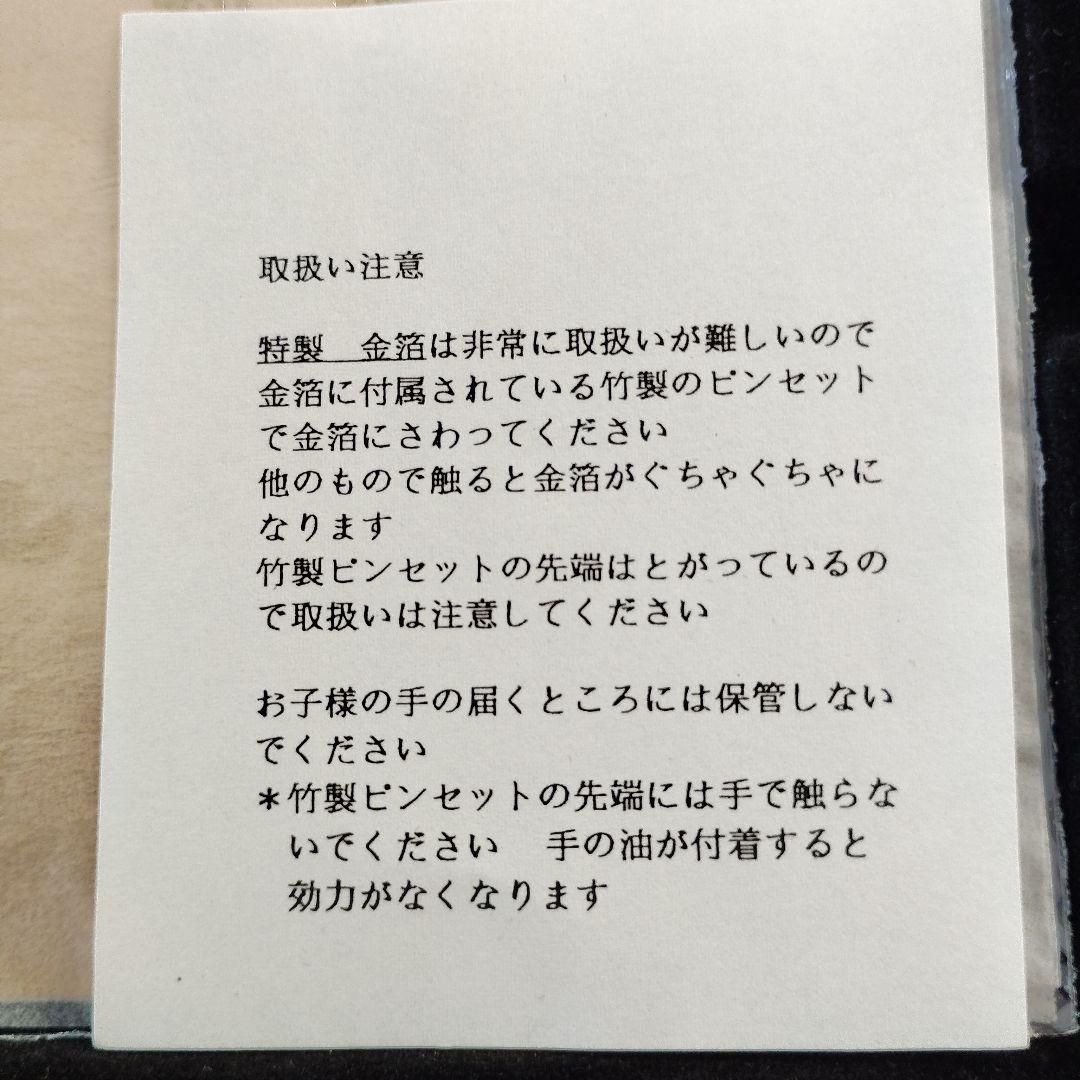 取扱い注意
特製　金箔は非常に取扱いが難しいので
金箔に付属されている竹製のピンセット
で金箔にさわってください
他のもので触ると金箔がぐちゃぐちゃに
なります
竹製ピンセットの先端はとがっているの
で取扱いは注意してください
お子様の手の届くところには保管しない
でください
＊竹製ピンセットの先端には手で触らな
いでください　手の油が付着すると
効力がなくなります